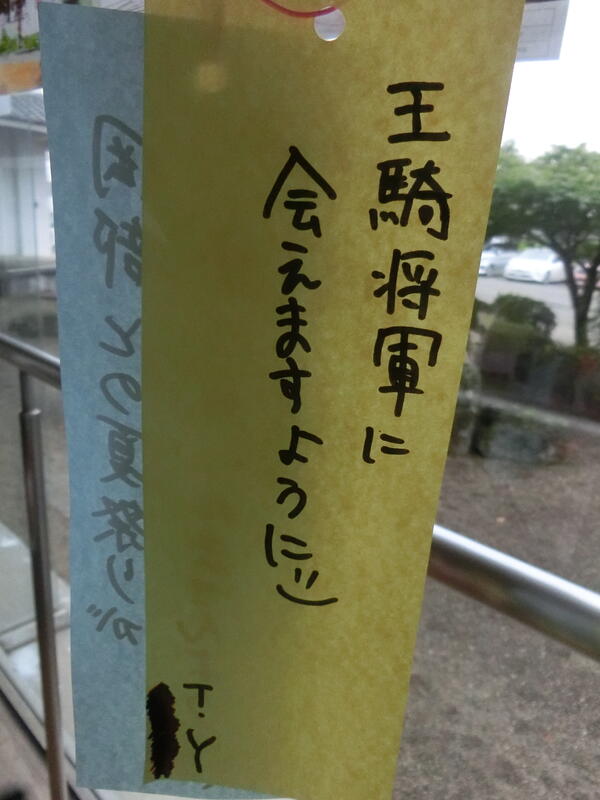 王騎将軍に
会えますように
T.Y
岡部との夏祭りが